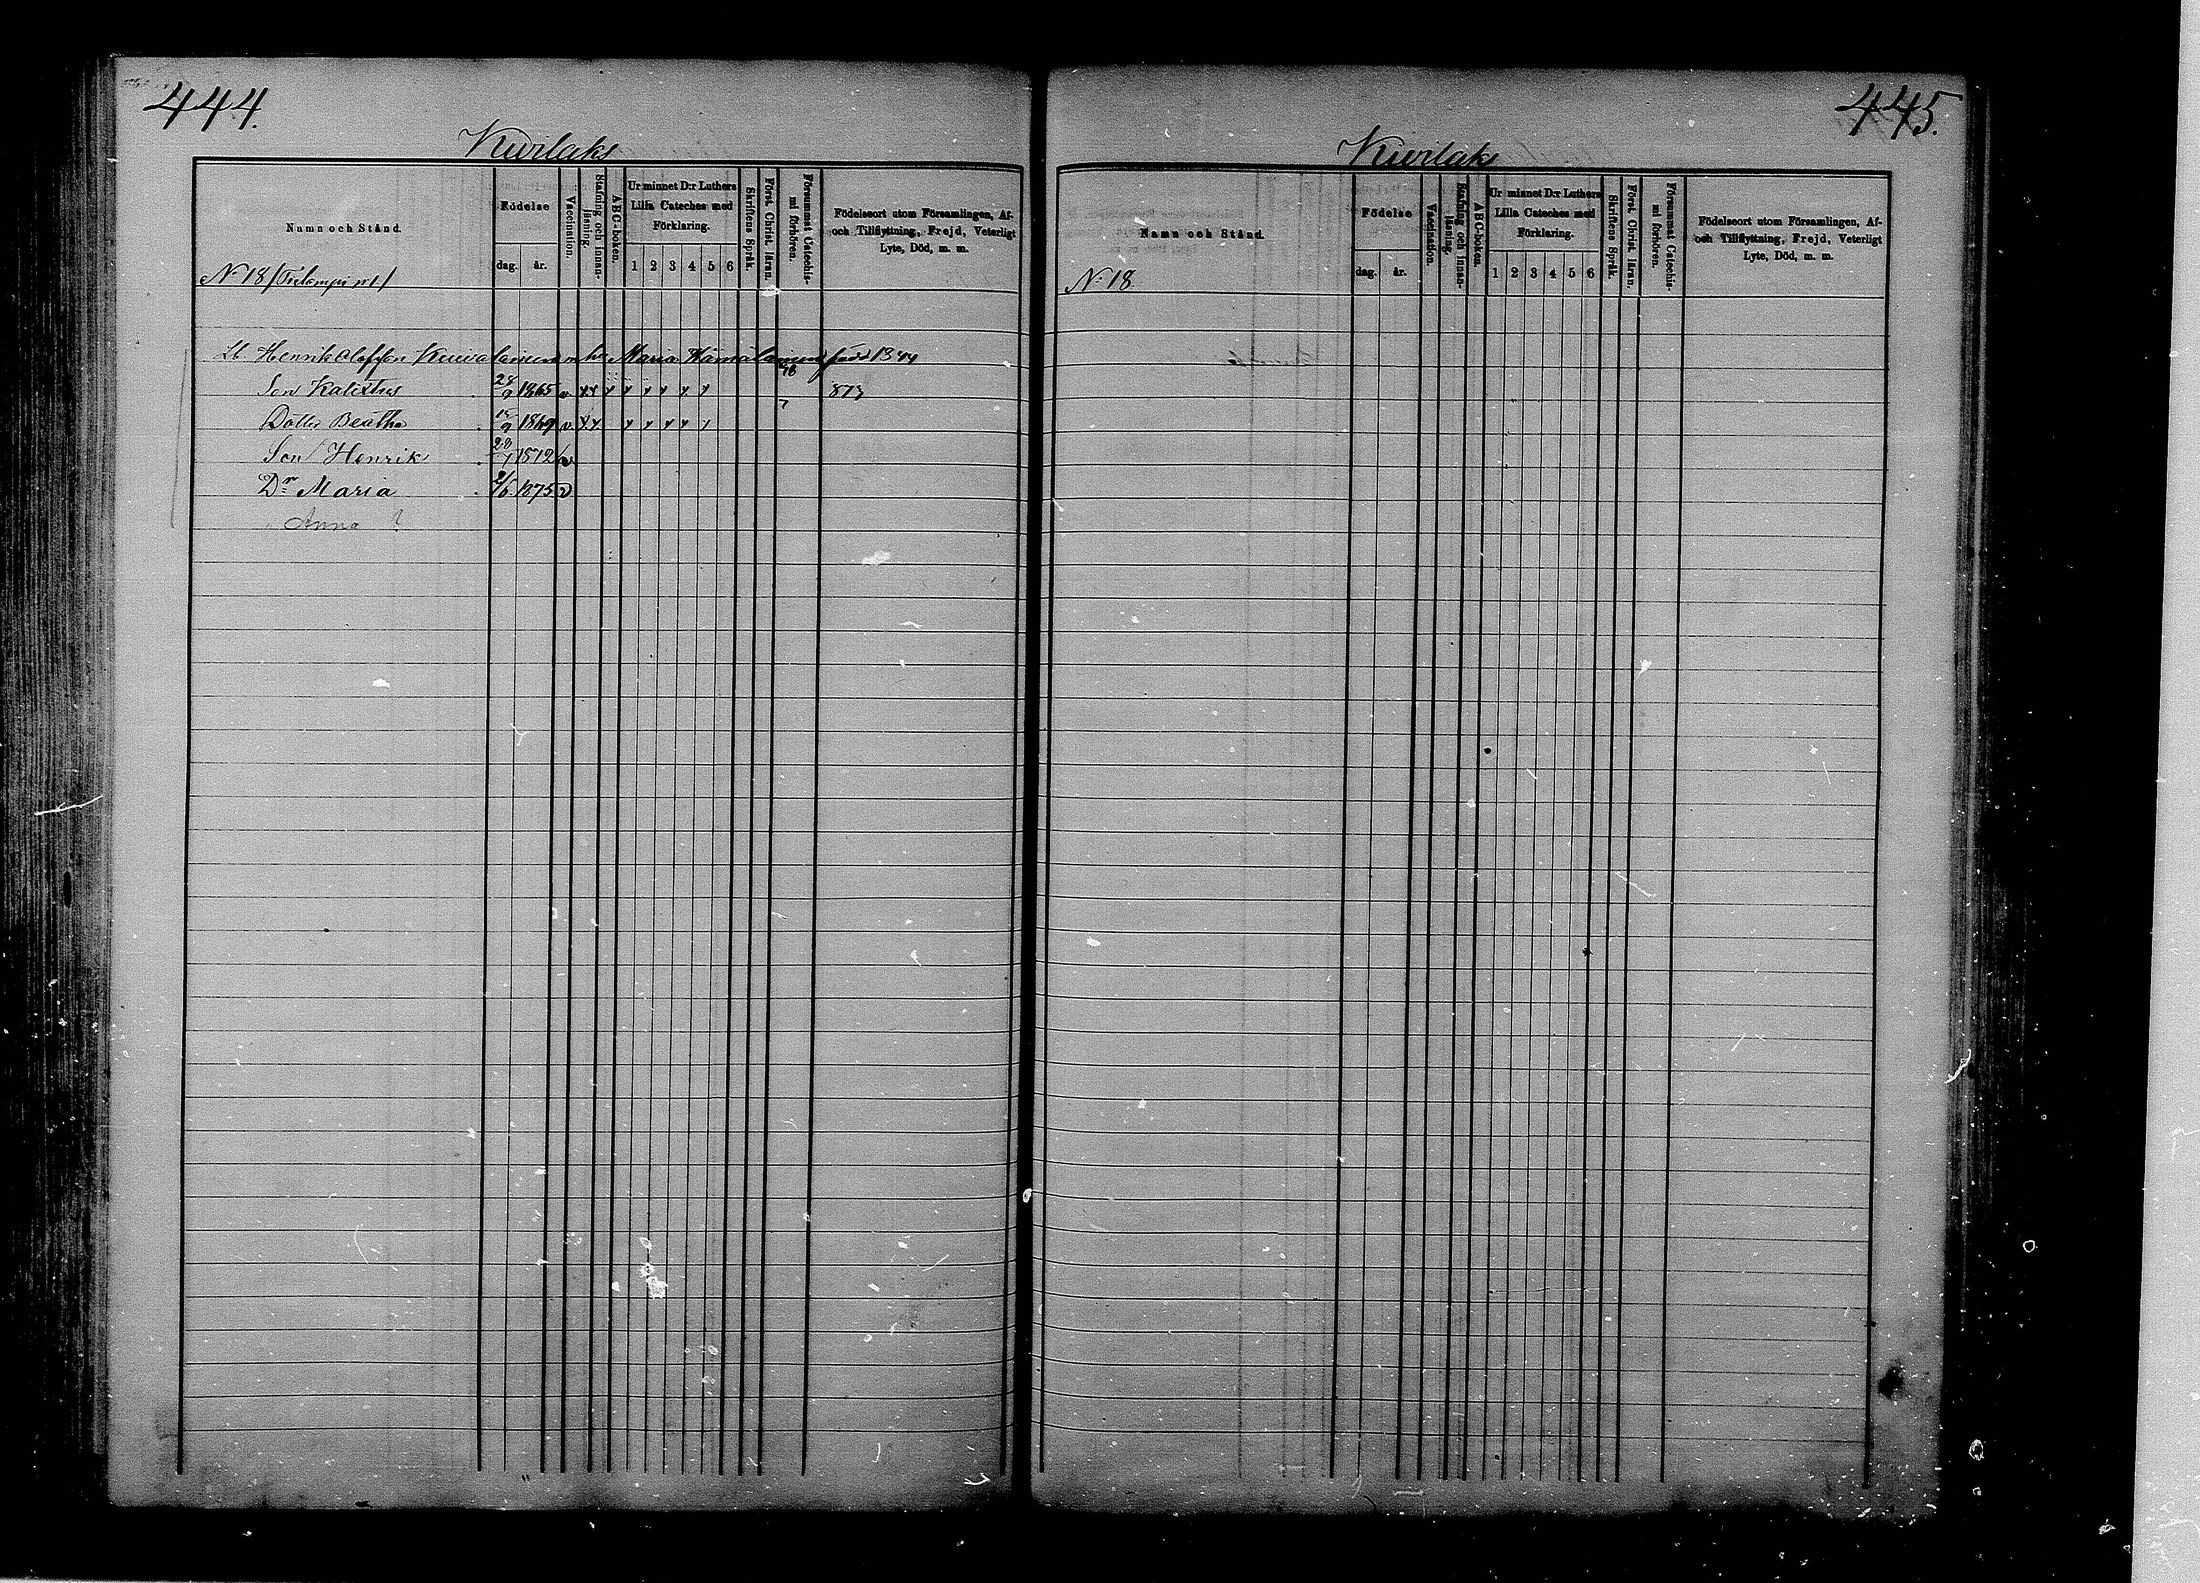 444.
Kuvilaks
Namn och Stånd.
Födelse
dag. år.
Vaccination.
Stafning och innan-
läsning.
ABC-boken.
Ur minnet D:r Luthers
Lilla Cateches med
Förklaring.
1 2 3 4 5 6
Skriftens Språk.
Först. Christ. läran.
Försummat Catechis-
mi förhören.
Födelseort utom Församlingen, Af-
och Tillflyttning, Frejd, Veterligt
Lyte, Död, m. m.
N 18
Lb. Henrik Maria född 1844
Son 28/9 1865 v x x x x x x x x 873
Beatha 1869 v x x x x x x x
Son Henrik 28/1 1872 v
Dr Maria 2/6 1875 v
Anna ?
445.
Kuvilaks
Namn och Stånd.
Födelse
dag. år.
Vaccination.
Stafning och innan-
läsning.
ABC-boken.
Ur minnet D:r Luthers
Lilla Cateches med
Förklaring.
1 2 3 4 5 6
Skriftens Språk.
Först. Christ. läran.
Försummat Catechis-
mi förhören.
Födelseort utom Församlingen, Af-
och Tillflyttning, Frejd, Veterligt
Lyte, Död, m. m.
N:o 18